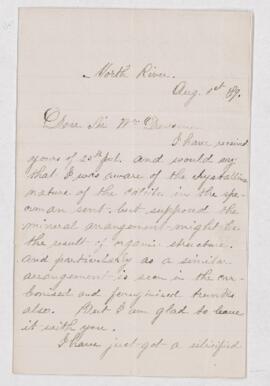 North River.
Aug. 1st 89.
Dear Sir Wm Dawson
I have received
yours of 25th Jul. and would say
that I was aware of the crystalline
nature of the calcite in the spe-
cimen sent but supposed the
mineral arrangement might be
the result of organic structure.
and particularly as a similar
arrangement is seen in the car-
bonised and ferruginised trunks
also. But I am glad to leave
it with you.
I have just got a silicified